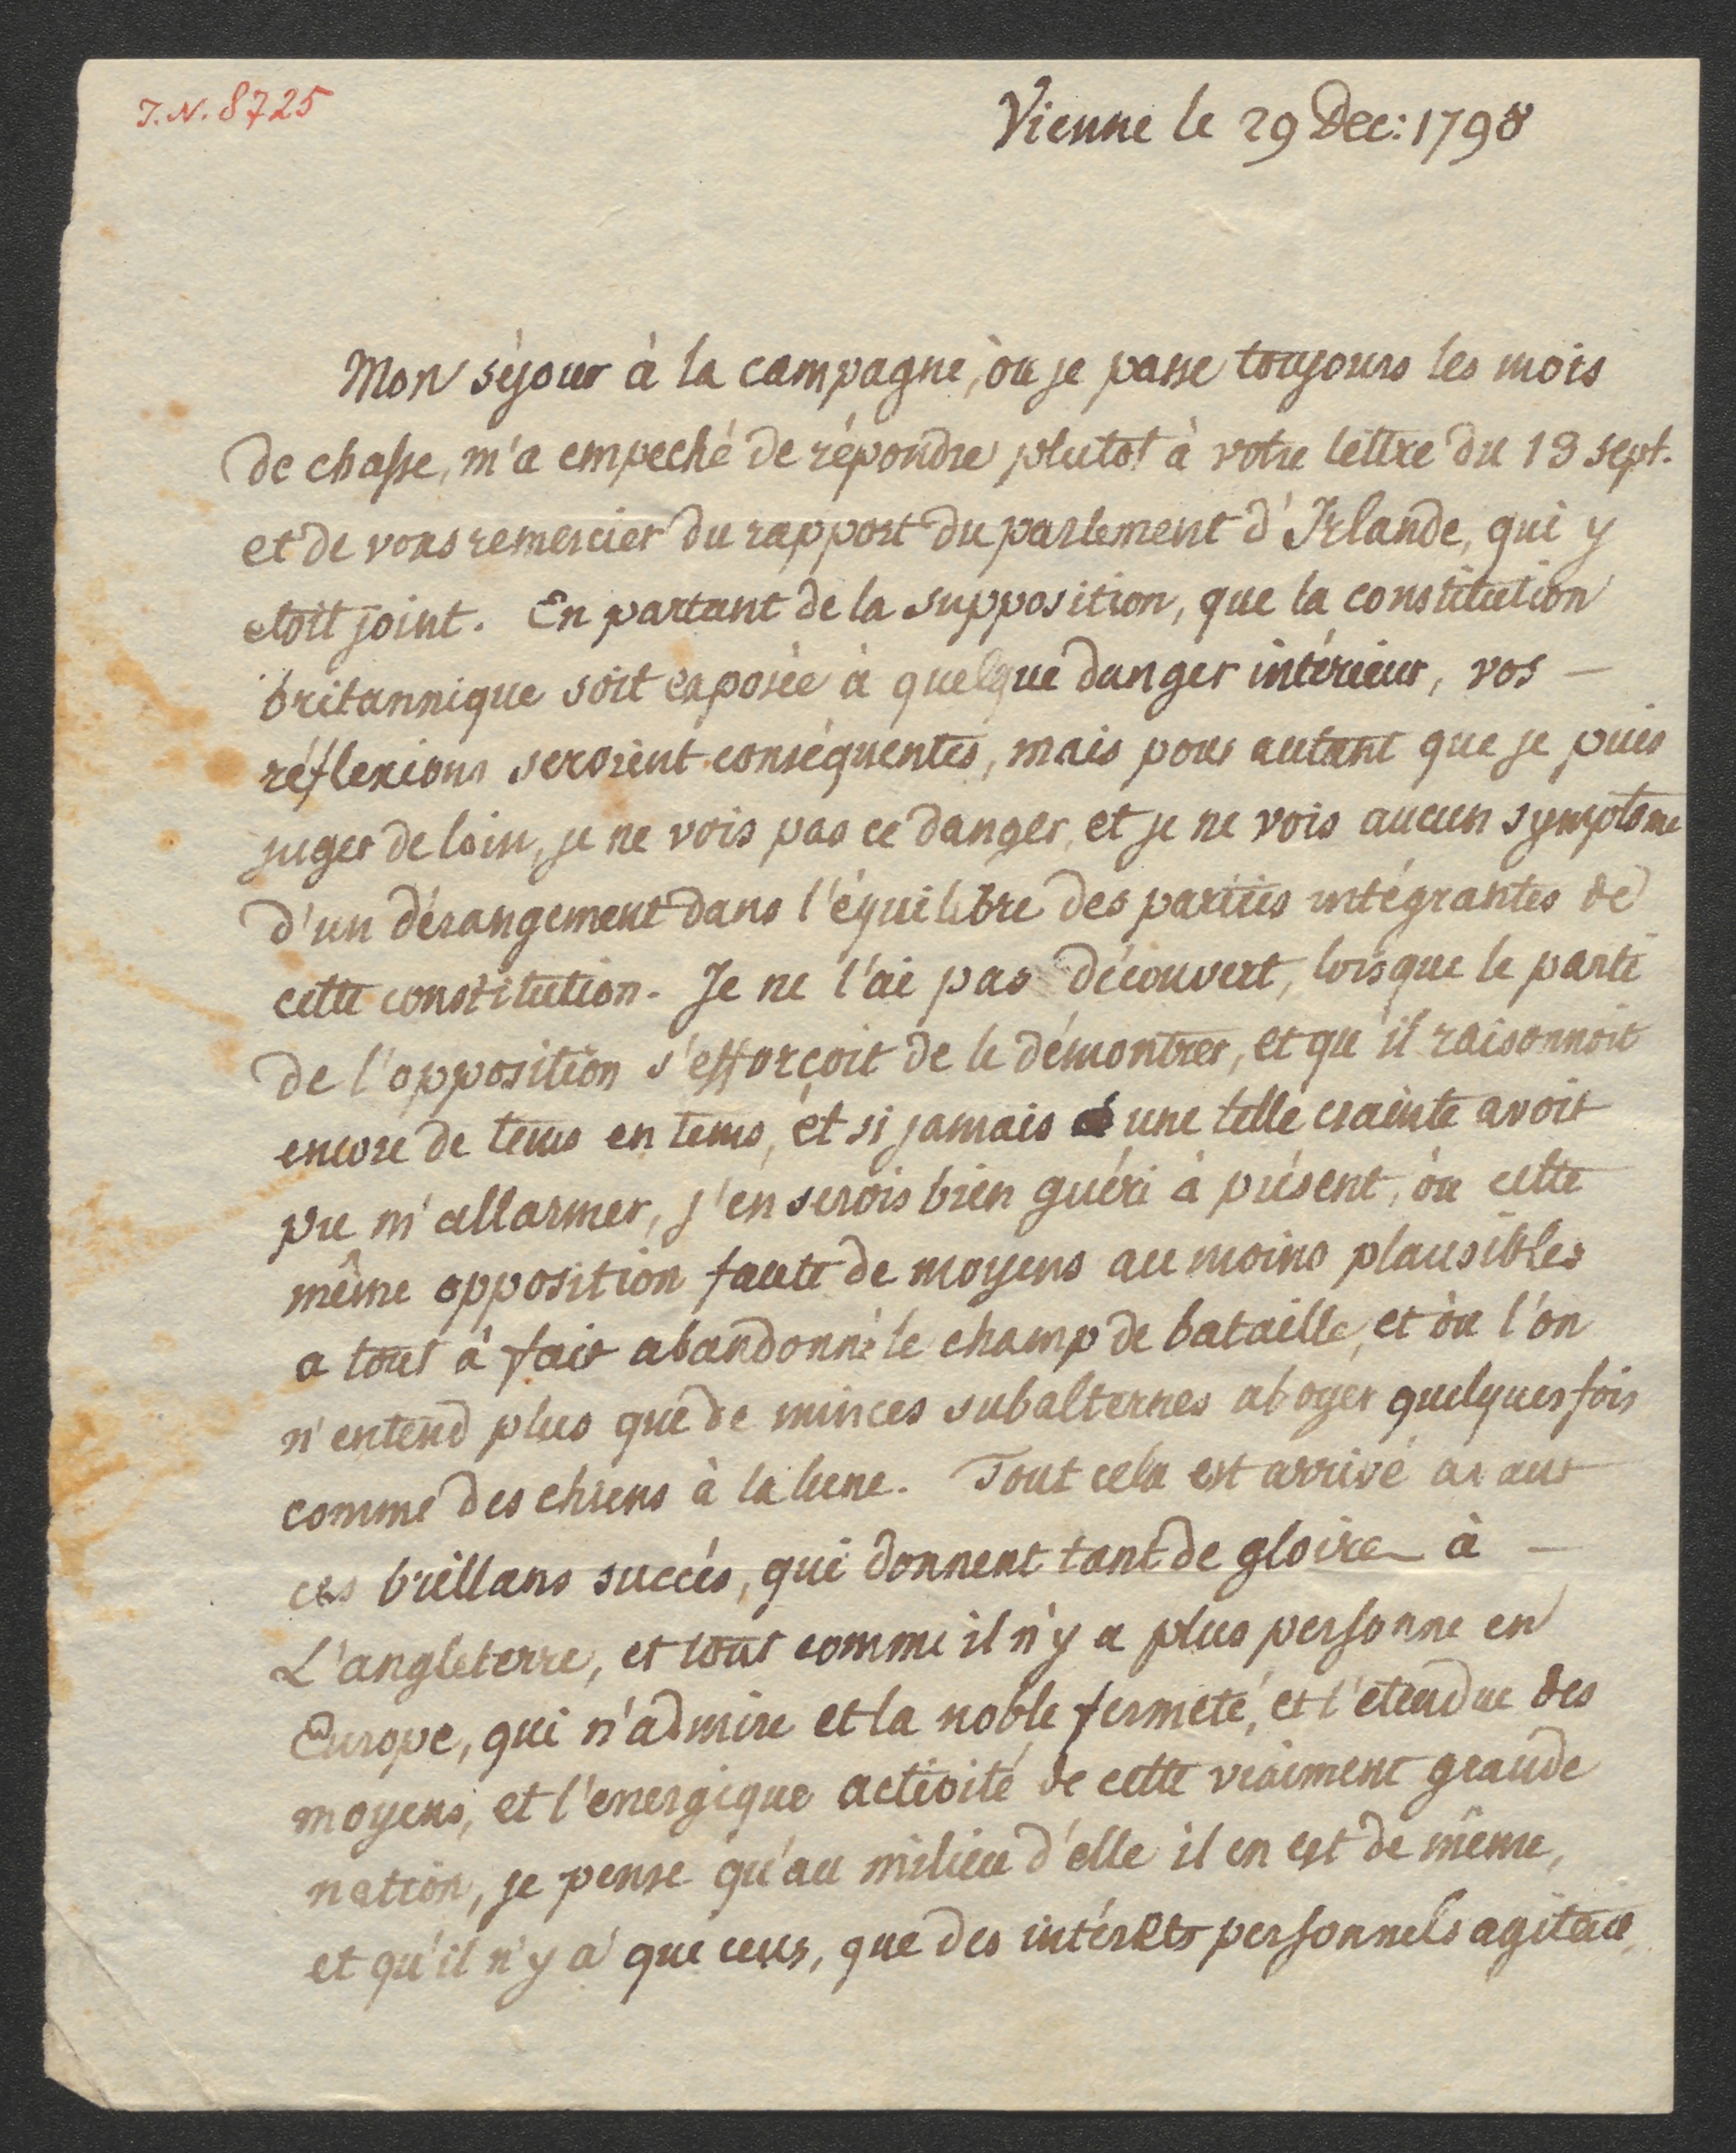 J.N. 8725
Vienne le 29 Dec: 1798
Mon séjour à la campagne, òu je passe toujours les mois
de chasse, m'a empeché de répondre plutot à votre lettre du 13 sept.
et de vous remercier du rapport du parlement d'Irlande, qui y
etoit joint. En partant de la supposition, que la constitution
britannique soit exposée à quelque danger intérieur, vos –
réflexions seroient conséquentes, mais pour autant que je puis
juger de loin, je ne vois pas ce danger, et je ne vois aucun symptome
d'un dérangement dans l'équilibre des parties intégrantes de
cette constitution. Je ne l'ai pas découvert, lorsque le parti
de l'opposition s'efforçoit de le démontrer, et qu'il raisonnoit
encore de tems en tems, et si jamais une telle crainte avoit
pu m'allarmer, j'en serois bien guéri à présent, òu cette
même opposition faute de moyens au moins plausibles
a tout à fait abandonné le champ de bataille, et òu l'on
n'entend plus que de minces subalternes aboyer quelquesfois
comme des chiens à la lune. Tout cela est arrivé avant
ces brillans succés, qui donnent tant de gloire à –
L'angleterre, et tout comme il n'y a plus personne en
Europe, qui n'admire et la noble fermeté, et l'etendue des
moyens, et l'energique activité de cette vraiment grande
nation, je pense qu'au milieu d'elle il en est de même,
et qu'il n'y a que ceux, que des intérêts personnels agitent,